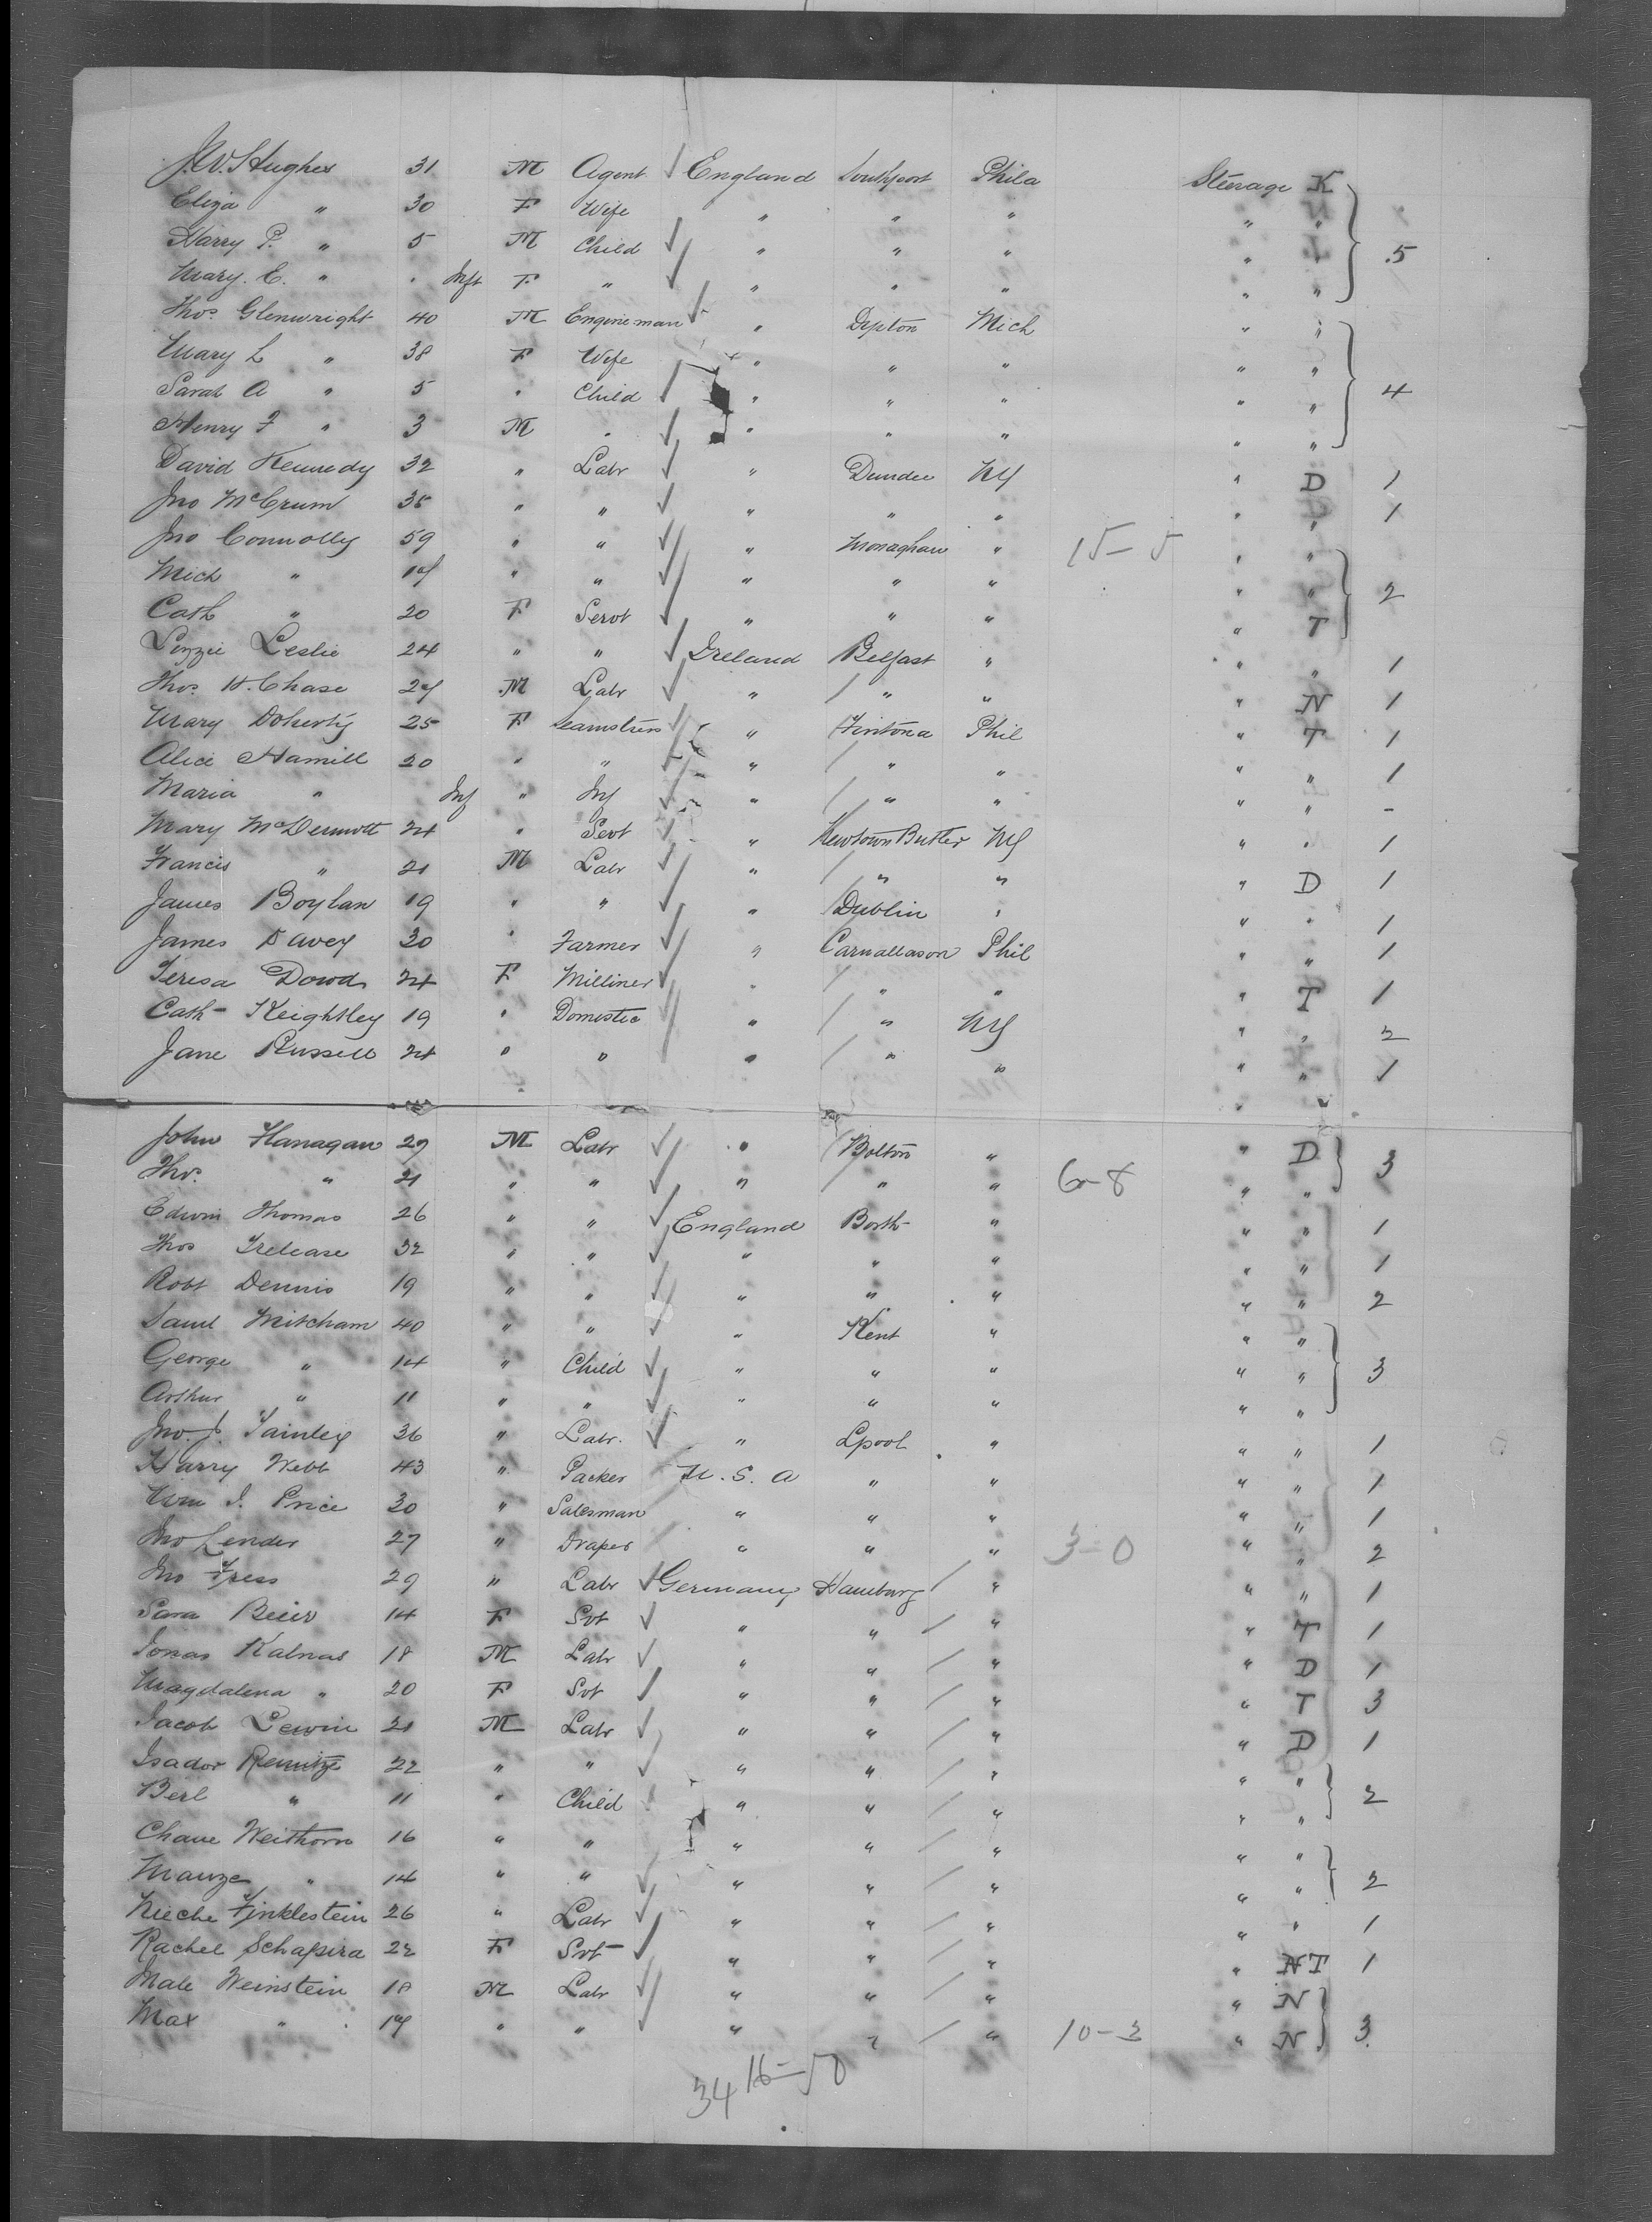 J.W. Hughes 31 M Agent England Southport Phila Steerage K
Eliza " 30 F Wife " " " " "
Harry P. " 5 M Child " " " " " 5
Mary. E. " Inft F " " " " " "
Thos. Glenwright 40 M Engineman " Dipton Mich " "
Mary L " 38 F Wife " " " " "
Sarah A " 5 " Child " " " " " 4
Henry F " 3 M " " " " " "
David Kennedy 32 " Labr " Dundee NY " D 1
Jno McCrum 35 " " " " " " " 1
Jno Connolly 59 " " " Monaghan " 15-5 " "
Mich " 17 " " " " " " " 2
Cath " 20 F Servt " " " " T
Lizzie Leslie 24 " " Ireland Belfast " " " 1
Thos. H. Chase 27 M Labr " " " " N 1
Mary Doherty 25 F Seamstress " Fintona Phil " T 1
Alice Hamill 20 " " " " " " " 1
Maria " Inf " Inf " " " " " -
Mary McDermott 24 " Sevt " Newtown Butler NY " " 1
Francis " 21 M Labr " " " " D 1
James Boylan 19 " " " Dublin " " " 1
James Davey 30 " Farmer " Phil " " 1
Teresa Dowd 24 F Milliner " " " " T 1
Cath- Keightley 19 " Domestic " " NY " " 2
Jane Russell 24 " " " " " " " 1
John Flanagan 29 M Labr " Bolton " " D 3
Thos. " 21 " " " " " 6-8 " "
Edwin Thomas 26 " " England Borth " " " 1
Thos Trelease 32 " " " " " " " 1
Robt Dennis 19 " " " " " " " 2
Saml Mitcham 40 " " " Kent " " "
George " 14 " Child " " " " " 3
Arthur " 11 " " " " " " "
Jno. J. Tainley 36 " Labr. " Lpool " " " 1
Harry Webb 43 " Packer U.S.A " " " " 1
Wm J. Price 30 " Salesman " " " " " 1
Jno Lender 27 " Draper " " " 3-0 " " 2
Jno Fress 29 " Labr Germany Hamburg " " " 1
Sara Beier 14 F Svt " " " " T 1
Jonas Kalnas 18 M Labr " " " " D 1
Magdalena " 20 F Svt " " " " T 3
Jacob Lewin 21 M Labr " " " " D 1
Isador 22 " " " " " " "
Berl " 11 " Child " " " " " 2
Chane Weithorn 16 " " " " " " "
Mauze " 14 " " " " " " " 2
Nieche Finklestein 26 " Labr " " " " " 1
Rachel Schapira 22 F Svt " " " " NT 1
Male Weinstein 18 M Labr " " " " N
Max " 17 " " " " " 10-3 " N 3
34 16-50